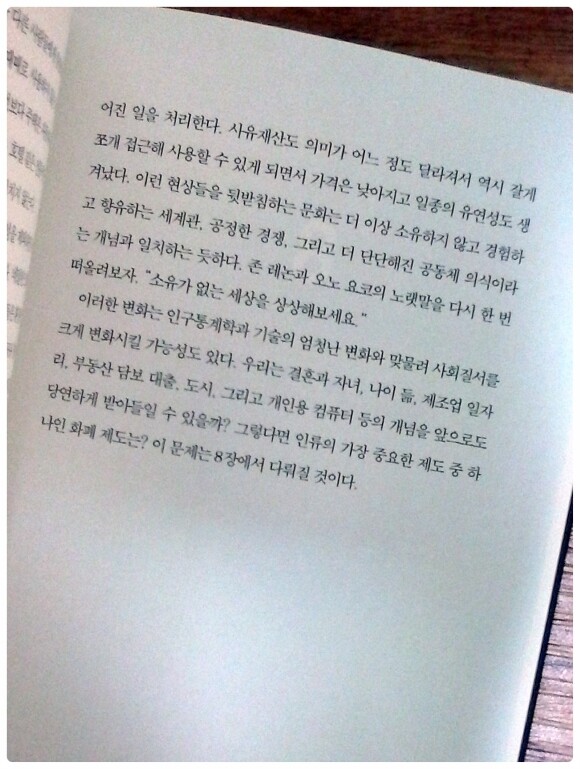 어진 일을 처리한다. 사유재산도 의미가 어느 정도 달라져서 역시 잘게
쪼개 접근해 사용할 수 있게 되면서 가격은 낮아지고 일종의 유연성도 생
겨났다. 이런 현상들을 뒷받침하는 문화는 더 이상 소유하지 않고 경험하
고 향유하는 세계관, 공정한 경쟁, 그리고 더 단단해진 공동체 의식이라
는 개념과 일치하는 듯하다. 존 레논과 오노 요코의 노랫말을 다시 한 번
떠올려보자. “소유가 없는 세상을 상상해보세요.”
이러한 변화는 인구통계학과 기술의 엄청난 변화와 맞물려 사회질서를
크게 변화시킬 가능성도 있다. 우리는 결혼과 자녀, 나이 듦, 제조업 일자
리, 부동산 담보 대출, 도시, 그리고 개인용 컴퓨터 등의 개념을 앞으로도
당연하게 받아들일 수 있을까? 그렇다면 인류의 가장 중요한 제도 중 하
나인 화폐 제도는? 이 문제는 8장에서 다뤄질 것이다.